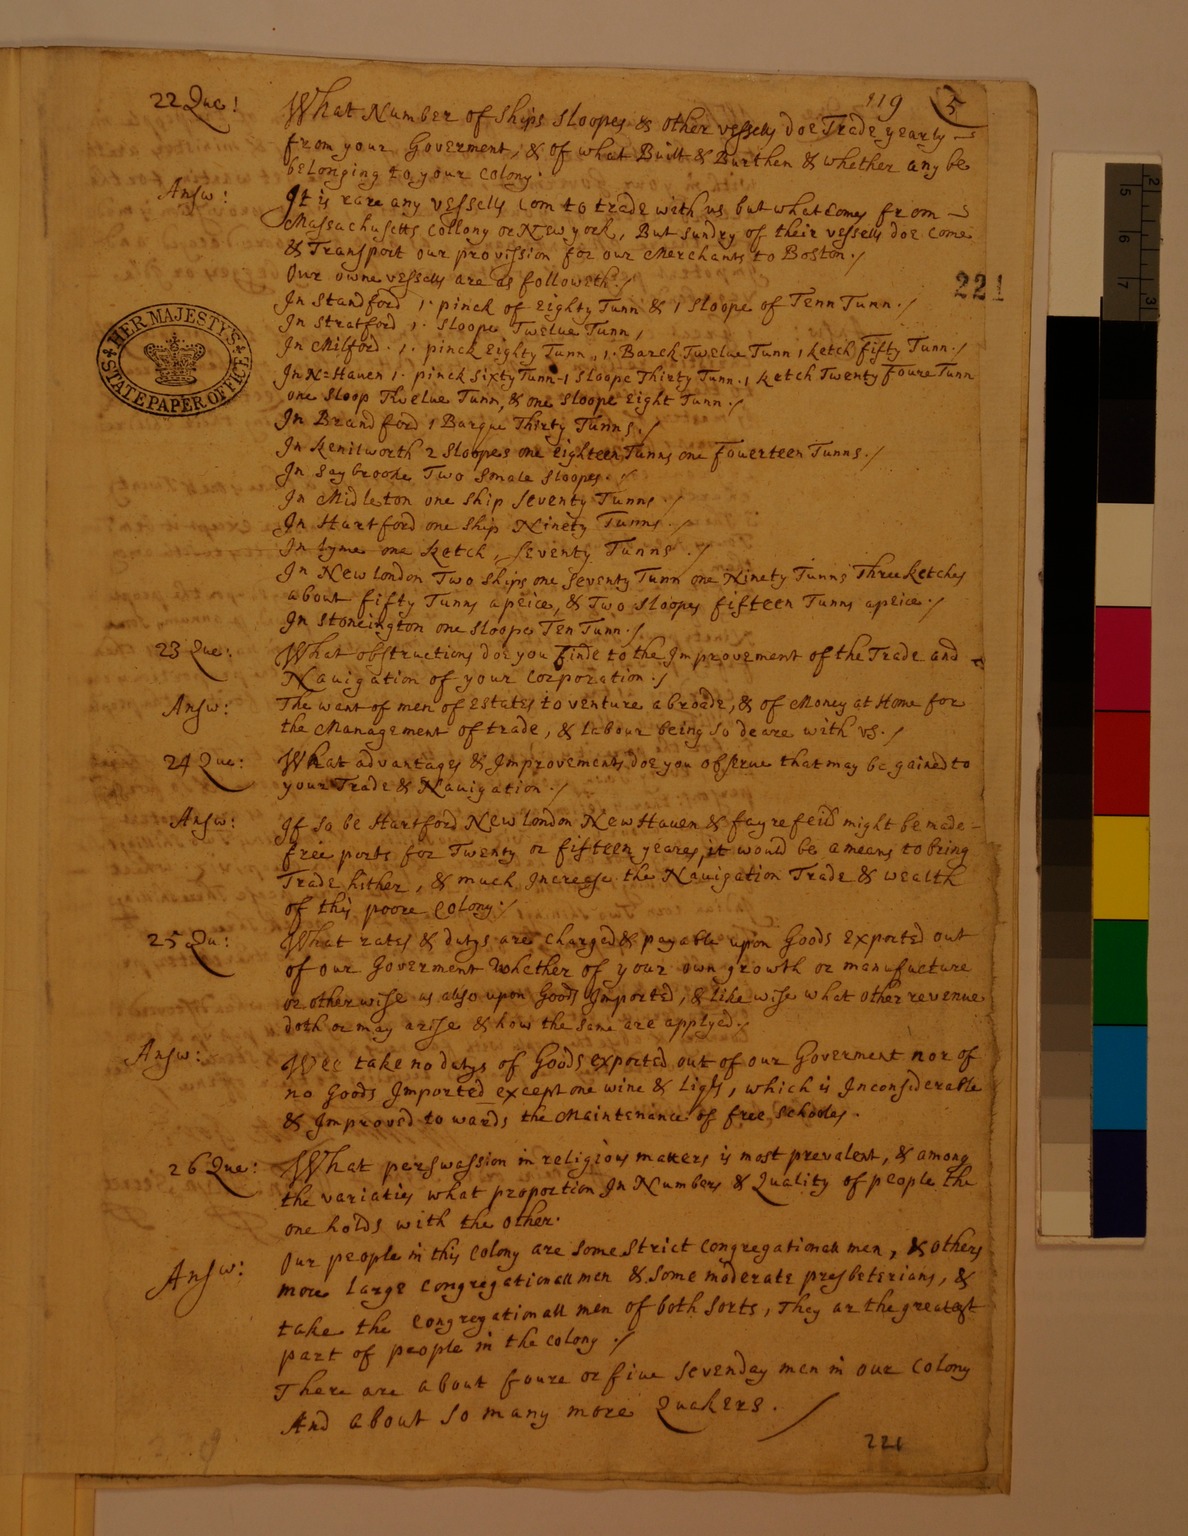 119 5
22 Que: What Number of Ships Sloopes & other vessells doe Trade yearly
from your Goverment, & of what Built & Burthen & whether any be
belonging to your Colony.
Answ: It is rare any vessells com to trade with us but what comes from
Massachusetts Collony or New york, But sundry of their vessells doe come
& Transport our provission for our Merchants to Boston./
Our owne vessells are as followeth./
In Standford 1. pinck of Eighty Tunn & 1 Sloope of Tenn Tunn./
In Stratford 1. Sloope Twelve Tunn,
In Milford. 1. pinck Eighty Tunn, 1. Barck Twelve Tunn 1 ketch fifty Tunn./
In N=Haven 1. pinck Sixty Tunn 1 Sloope Thirty Tunn. 1 ketch Twenty foure Tunn
one Sloop Twelve Tunn, & one Sloope Eight Tunn./
In Brandford 1 Barque Thirty Tunns./
In Kenilworth 2 Sloopes one Eighteen Tunns one fouerteen Tunns./
In Saybrooke Two Smale Sloopes./
In Midleton one Ship Seventy Tunns./
In Hartford one Ship Ninety Tunns./
In Lyme one ketch, Seventy Tunns./
In New London Two Ships one Seventy Tunn one Ninety Tunns Three ketches
about fifty Tunns apeice, & Two Sloopes fifteen Tunns apeice./
In Stoneington one Sloope Ten Tunn./
23 Que: What obstructions doe you finde to the Improvement of the Trade and
Navigation of your Corporation./
Answ: The want of men of Estates to venture abroade, & of Money at Home for
the Management of trade, & labour being so deare with vs./
24 Que: What advantages & Improvements doe you observe that may be gained to
your Trade & Navigation./
Answ: If so be Hartford New London New Haven & fayrefeild might be made
free ports for Twenty or fifteen yeares, it would be a means to bring
Trade hither, & much Increase the Navigation Trade & wealth
of this poore Colony:/
25 Qu: What rates & dutys are charged & payable upon Goods Exported out
of our Goverment Whether of your own growth or manufacture
or otherwise as also upon Goods Imported, & likewise what other revenue
doth or may arise & how the same are applyed./
Answ: Wee take no dutys of Goods exported out of our Goverment nor of
no Goods Imported except one wine & Liqrs, which is Inconsiderable
& Improved towards the Maintenance of free Schooles.
26 Que: What perswassion in religious matters is most prevalent, & among
the varieties what proportion In Numbers & Quality of people the
one holds with the other.
Answ: Our people in this Colony are some Strict Congregationall men, & others
more large Congregationall men & some moderate presbeterians, &
take the Congregationall men of both sorts, They ar the greatest
part of people in the Colony ./
There are about foure or five Sevenday men in our Colony
And about so many more Quakers. /
221
HER MAJESTY'S
STATE PAPER OFFICE
221